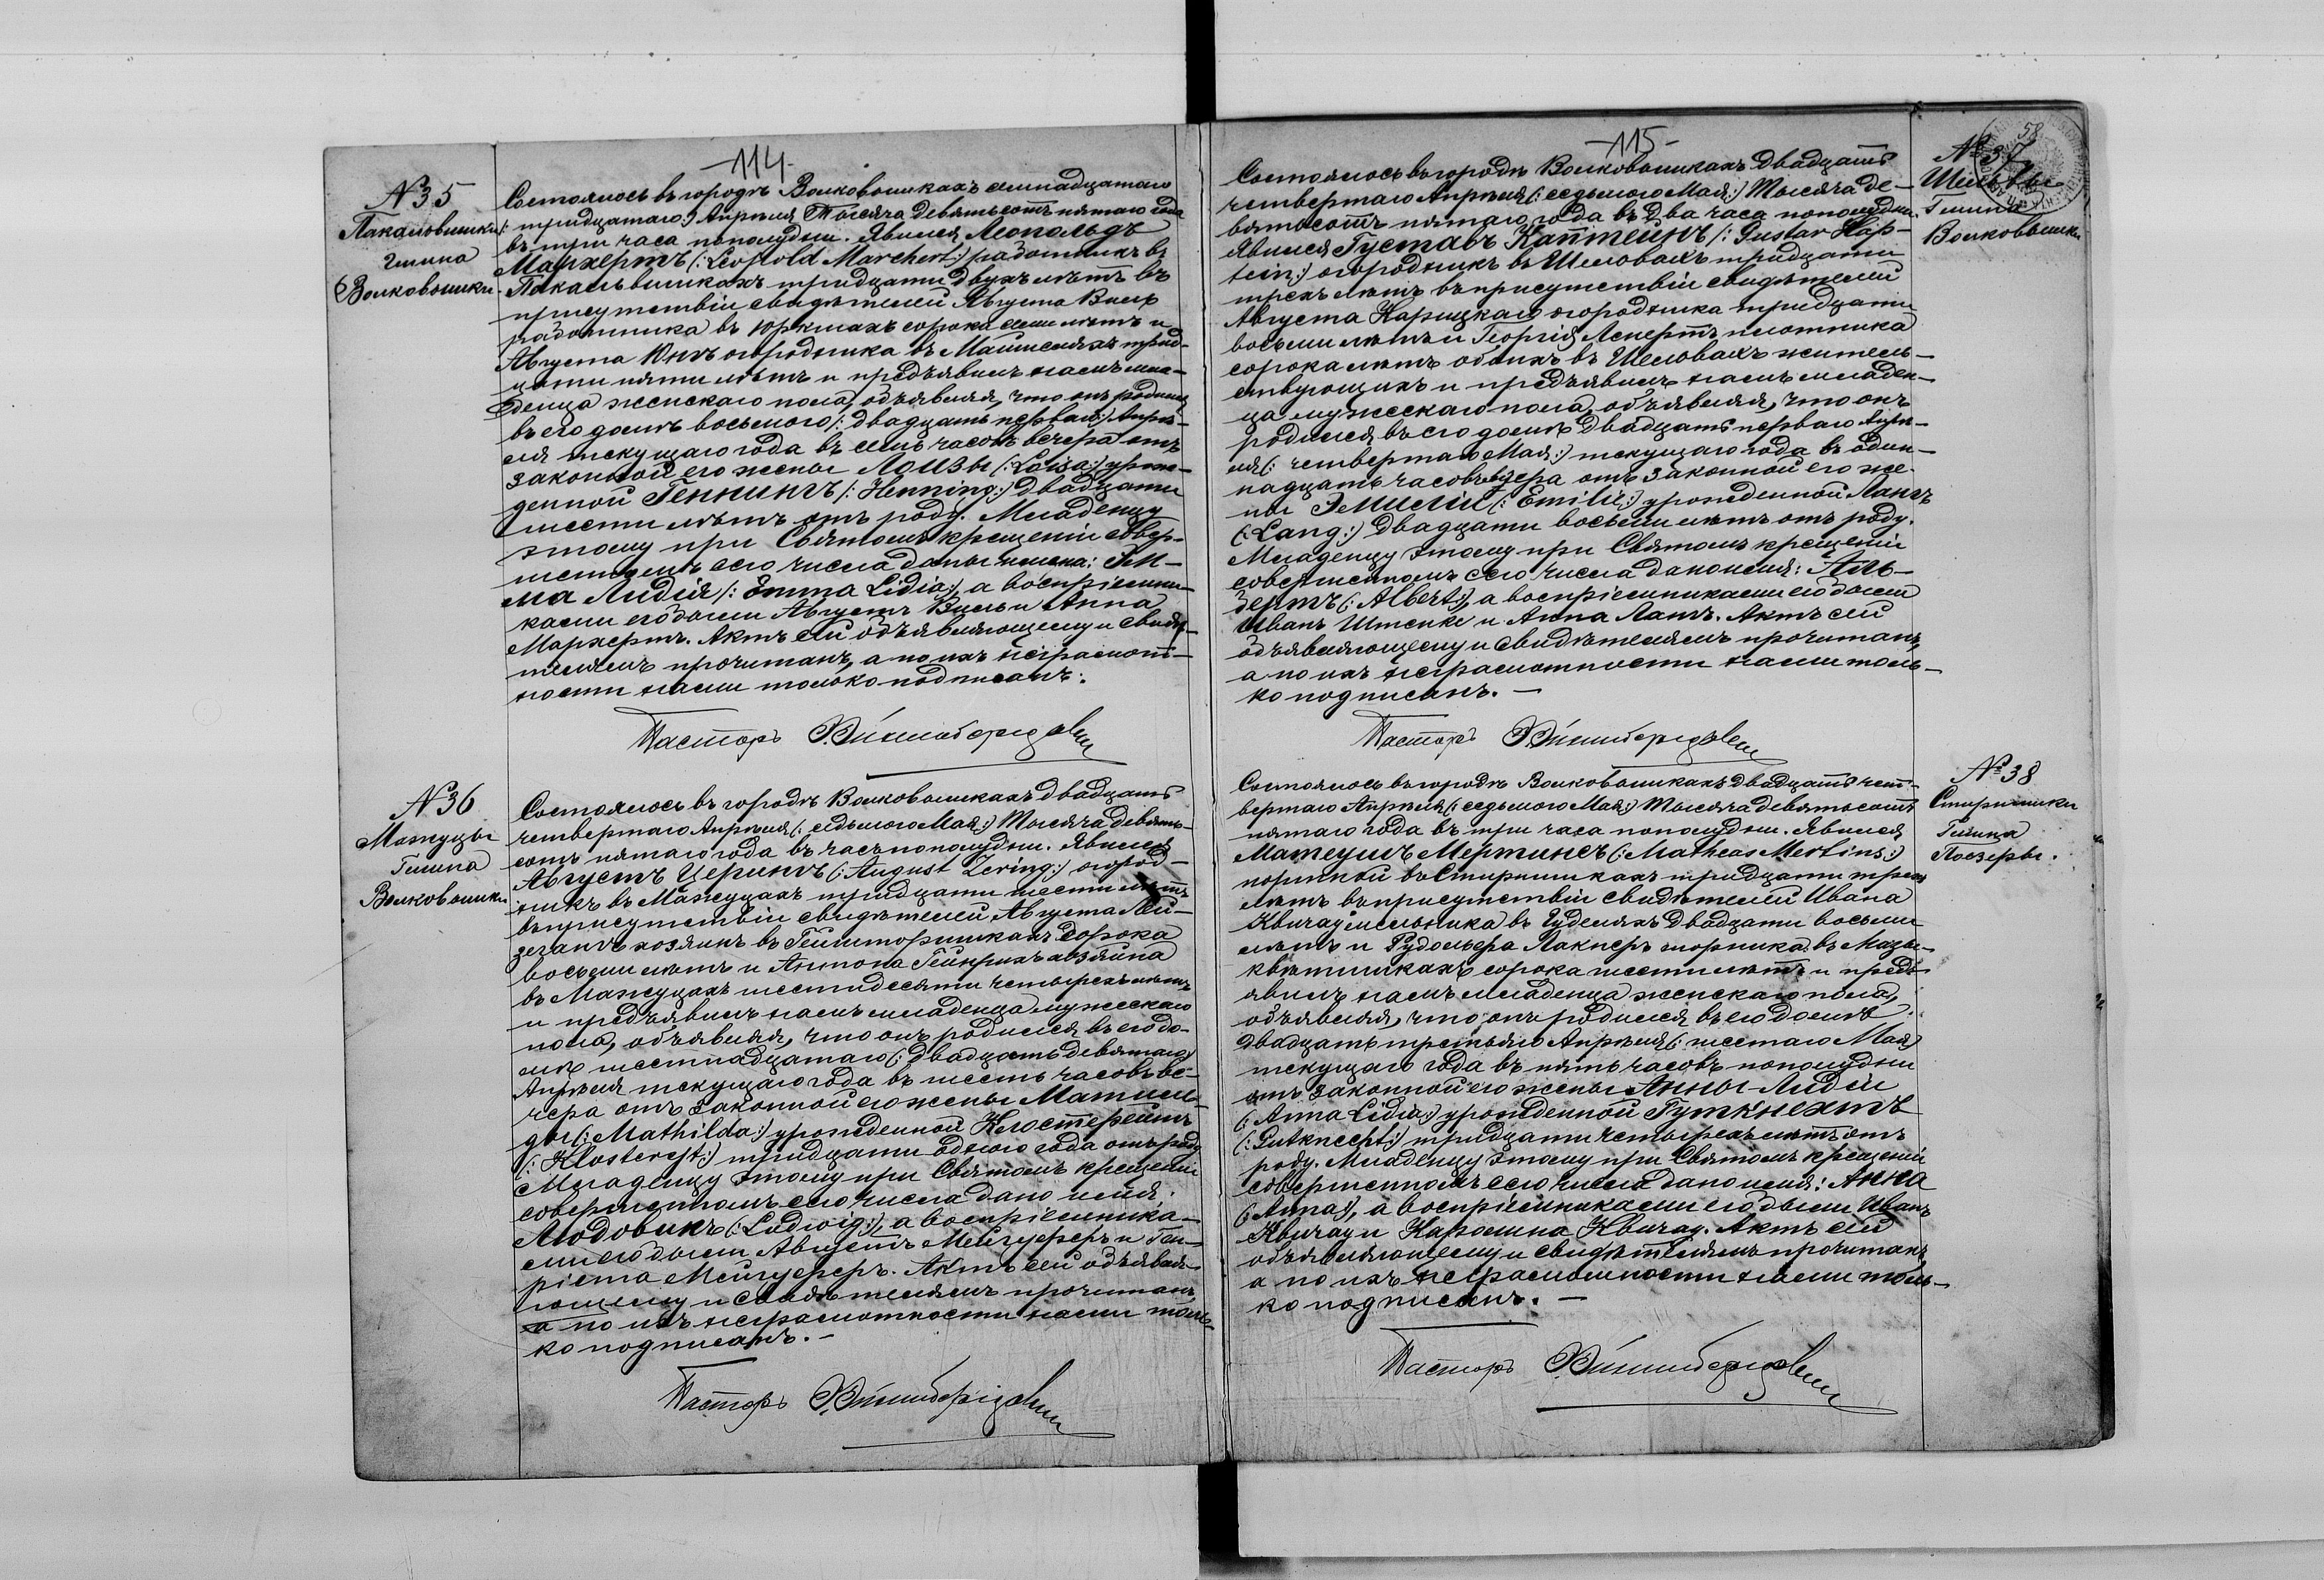 -114-
№ 35
Пакаловишки
гмина
Волковышки.
Состоялось въ городѣ Волковышкахъ семнадцатаго
(: тридцатаго:) Апрѣля Тысяча девятьсотъ пятаго года
въ три часа пополудни. Явился Леопольдъ
Мархертъ (: Leopold Marchert:) работникъ въ
Пакальвишкахъ тридцати двухъ лѣтъ въ
присутствіи свидѣтелей Августа
работника въ Юркшахъ сорока семи лѣтъ и
Августа огородника въ трид-
цати пяти лѣтъ и предъявилъ намъ мла-
денца женскаго пола, объявляя, что онъ родился
въ его домѣ восьмого (: двадцать перваго:) Апрѣ-
ля текущаго года въ семь часовъ вечера отъ
законной его жены Лоизы (: Loisa:) урож-
денной Геннингъ (: Henning:) двадцати
шести лѣтъ отъ роду. Младенцу
этому при Святомъ крещеніи совер-
шенномъ сего числа даны имена: Эм-
ма Лидія (: Emma Lidia:), а воспріемни-
ками его были Августъ и Анна
Мархертъ. Актъ сей объявляющему и свидѣ-
телямъ прочитанъ, а по ихъ неграмот-
ности нами только подписанъ.
Пасторъ
№ 36
Мажуцы
Гмина
Волковышки
Состоялось въ городѣ Волковышкахъ двадцать
четвертаго Апрѣля (: седьмого Мая:) Тысяча девять-
сотъ пятаго года въ часъ пополудни. Явился
Августъ Церингъ (: August Zering:) огород-
никъ въ Мажуцахъ тридцати шести лѣтъ
въ присутствіи свидѣтелей Августа Лей-
зеганъ хозяинъ въ сорока
восьми лѣтъ и Антона Гейнрихъ хозяина
въ Мажуцахъ шестидесяти четырехъ лѣтъ
и предъявилъ намъ младенца мужескаго
пола, объявляя, что онъ родился въ его до-
мѣ шестнадцатаго (: двадцать девятаго:)
Апрѣля текущаго года въ шесть часовъ ве-
чера отъ законной его жены Матиль-
ды (: Mathilda:) урожденной Клостерейтъ
(: Klosterejt:) тридцати одного года отъ роду
Младенцу этому при Святомъ крещеніи
совершенномъ сего числа дано имя:
Людовикъ (: Ludwig:), а воспріемника-
ми его были Августъ Мейгуферъ и Ген-
ріета Мейгуферъ. Актъ сей объявля-
ющему и свидѣтелямъ прочитанъ,
а по ихъ неграмотности нами толь-
ко подписанъ. -
Пасторъ
-115-
58
№ 37
Шельвы
Гмина
Волковышки
Состоялось въ городѣ Волковышкахъ двадцать
четвертаго Апрѣля (: седьмого Мая:) Тысяча де-
вятьсотъ пятаго года въ два часа пополудни.
Явился Густавъ Каптейнъ (: Gustav Kap-
tein:) огородникъ въ Шельвахъ тридцати
трехъ лѣтъ въ присутствіи свидѣтелей
Августа Карицкаго огородника тридцати
восьми лѣтъ и Георгія плотника
сорока лѣтъ обоихъ въ Шельвахъ житель-
ствующихъ и предъявилъ намъ младен-
ца мужескаго пола, объявляя, что онъ
родился въ его домѣ двадцать перваго Апрѣ-
ля (: четвертаго Мая:) текущаго года въ один-
надцать часовъ вечера отъ законной его же-
ны Эмиліи (: Emilie:) урожденной Лангъ
(: Lang:) двадцати восьми лѣтъ отъ роду.
Младенцу этому при Святомъ крещеніи
совершенномъ сего числа дано имя: Аль-
бертъ (: Albert:), а воспріемниками его были
Иванъ Штенке и Анна Лангъ. Актъ сей
объявляющему и свидѣтелямъ прочитанъ,
а по ихъ неграмотности нами толь-
ко подписанъ. -
Пасторъ
№ 38
Стирнишки
Гмина
Поезеры.
Состоялось въ городѣ Волковышкахъ двадцать чет-
вертаго Апрѣля (: седьмого Мая:) Тысяча девятьсотъ
пятаго года въ три часа пополудни. Явился
Матеушъ Мертинсъ (: Matheas Mertins:)
портной въ Стирнишкахъ тридцати трехъ
лѣтъ въ присутствіи свидѣтелей Ивана
Квичау мельника въ Гуделяхъ двадцати восьми
лѣтъ и Рудольфа Лакнеръ въ
сорока шести лѣтъ и предъ-
явилъ намъ младенца женскаго пола,
объявляя, что онъ родился въ его домѣ
двадцать третьяго Апрѣля (: шестаго Мая:)
текущаго года въ пять часовъ пополудни
отъ законной его жены Анны Лидіи
(: Anna Lidia:) урожденной Гуткнехтъ
(: Gutknecht:) тридцати четырехъ лѣтъ отъ
роду. Младенцу этому при Святомъ крещеніи
совершенномъ сего числа дано имя: Анна
(: Anna:), а воспріемниками его были Иванъ
Квичау и Каролина Квичау. Актъ сей
объявляющему и свидѣтелямъ прочитанъ,
а по ихъ неграмотности нами толь-
ко подписанъ. -
Пасторъ